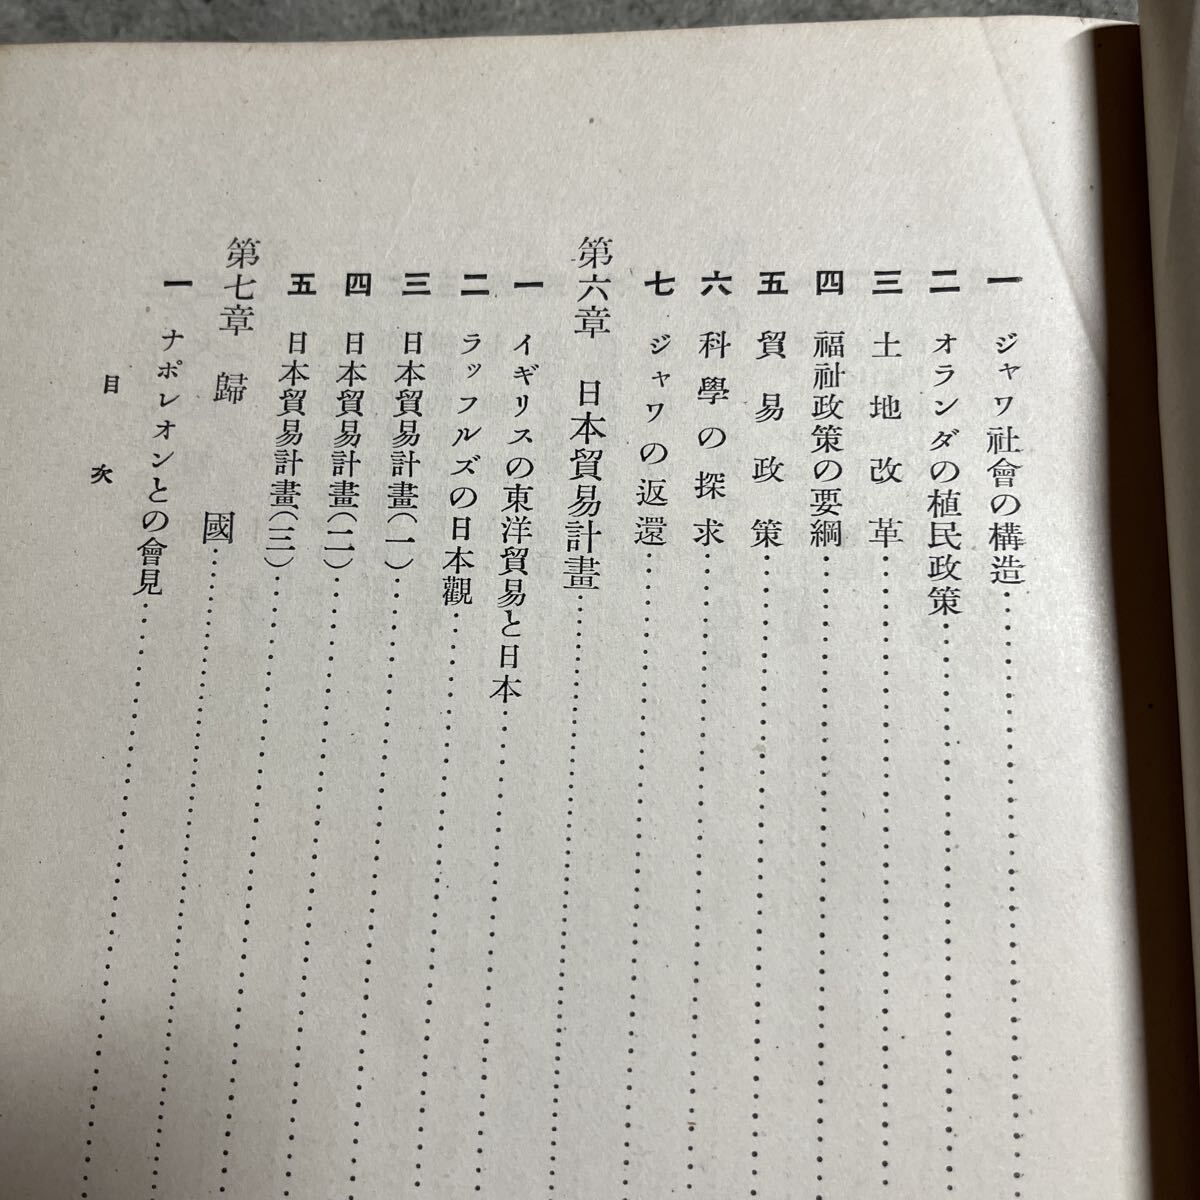 一 ジャワ社會の構造
二 オランダの植民政策
三 土地改革
四 福祉政策の要綱
五 貿易政策
六 科學の探求
七 ジャワの返還
第六章 日本貿易計畫
一 イギリスの東洋貿易と日本
二 ラッフルズの日本觀
三 日本貿易計畫(一)
四 日本貿易計畫(二)
五 日本貿易計畫(三)
第七章 歸國
一 ナポレオンとの會見
目次